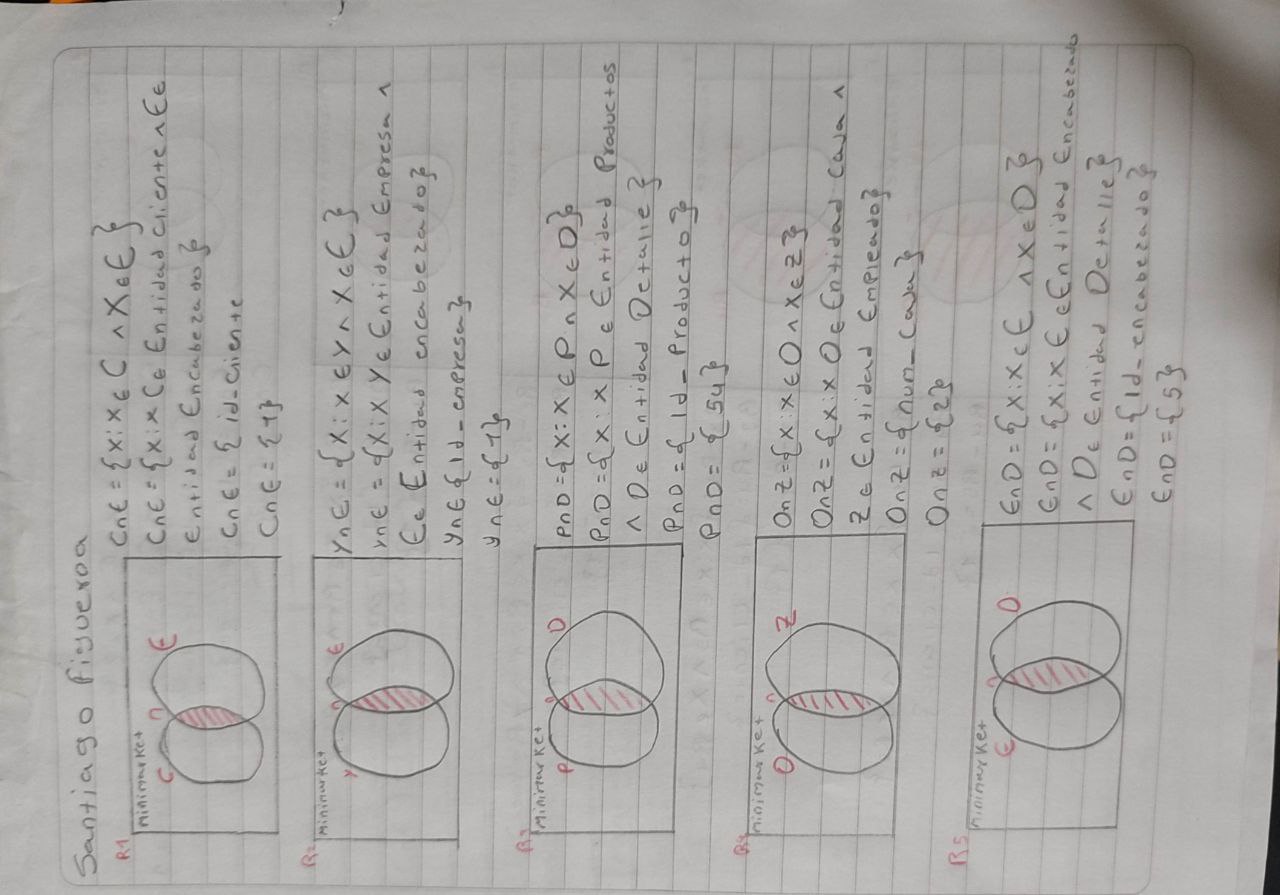 Santiago Figueroa
R1
minimarket
C ∩ E
C∩E = {x:x∈C ∧ X∈E}
C∩E = {x:x C∈ Entidad cliente ∧ E∈
Entidad Encabezado}
C∩E = {id_cliente
C∩E = {1}
R2
minimarket
Y ∩ E
Y∩E = {X:x∈Y ∧ X∈E}
Y∩E = {X:X Y∈ Entidad Empresa ∧
E∈ Entidad encabezado}
Y∩E {id_empresa}
Y∩E = {1}
R3
minimarket
P ∩ D
P∩D = {x:X∈P ∩ X∈D}
P∩D = {x:x P∈ Entidad Productos
∧ D∈ Entidad Detalle}
P∩D = {id_Producto}
P∩D = {54}
R4
minimarket
O ∩ Z
O∩Z = {x:x∈O ∧ X∈Z}
O∩Z = {x:x O∈ Entidad Caja ∧
Z∈ Entidad Empleado}
O∩Z = {num_caja}
O∩Z = {2}
R5
minimarket
E ∩ D
E∩D = {x:x∈E ∧ X∈D}
E∩D = {x:x E∈ Entidad Encabezado
∧ D∈ Entidad Detalle}
E∩D = {id_encabezado}
E∩D = {5}